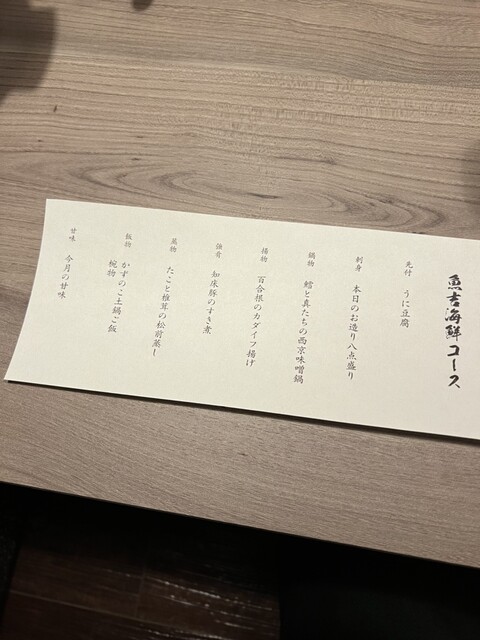 魚吉海鮮コース
先付
うに豆腐
刺身
本日のお造り八点盛り
鍋物
鱈と真たちの西京味噌鍋
揚物
百合根のカダイフ揚げ
強肴
知床豚のすき煮
蒸物
たこと椎茸の松前蒸し
飯物
かずのこ土鍋ご飯
椀物
甘味
今月の甘味